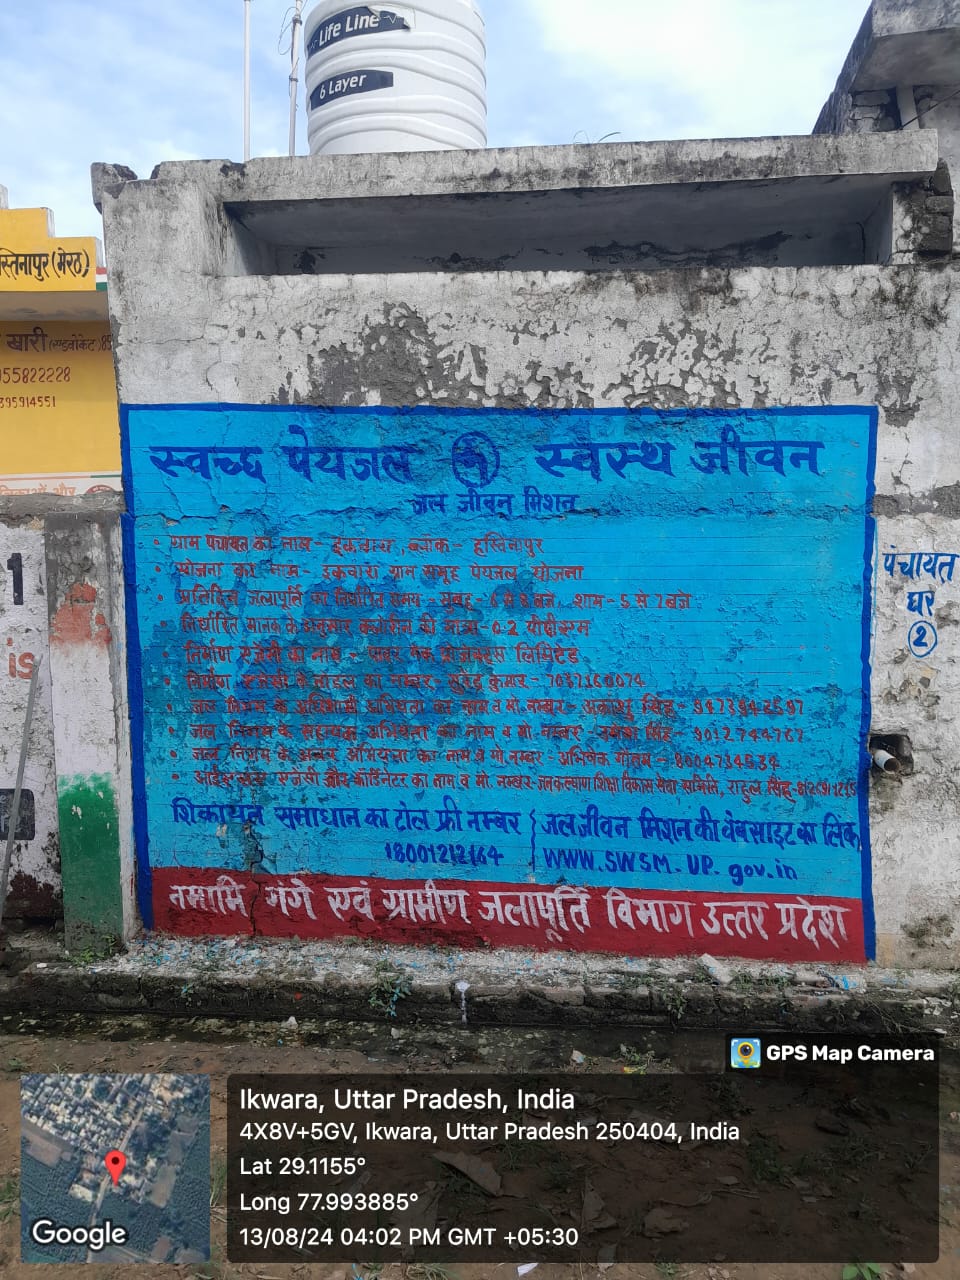 Life Line
6 Layer
स्तिनापुर (मेरठ)
खारी (एडवोकेट) 85
955822228
895914551
स्वच्छ पेयजल स्वस्थ जीवन
जल जीवन मिशन
• ग्राम पंचायत का नाम - इकवारा, ब्लॉक - हस्तिनापुर
• योजना का नाम - इकवारा ग्राम समूह पेयजल योजना
• प्रतिदिन जलापूर्ति का निर्धारित समय - सुबह - 6 से 8 बजे, शाम - 5 से 7 बजे
• निर्धारित मानक के अनुसार क्लोरीन की मात्रा - 0.2 पीपीएम
• निर्माण एजेंसी का नाम - पावर मेक प्रोजेक्ट्स लिमिटेड
• निर्माण एजेंसी के नोडल का नम्बर - सुरेंद्र कुमार - 7037160074
• जल निगम के अधिशासी अभियंता का नाम व मो. नम्बर - सिंह - 9473942597
• जल निगम के सहायक अभियंता का नाम व मो. नम्बर - सिंह - 9012744767
• जल निगम के अवर अभियन्ता का नाम व मो. नम्बर - अभिषेक गौतम - 8004734534
• आईएसए एजेंसी और कोर्डिनेटर का नाम व मो. नम्बर - जनकल्याण शिक्षा विकास सेवा समिति, राहुल सिंह -
शिकायत समाधान का टोल फ्री नम्बर
18001212164
जल जीवन मिशन की वेबसाइट का लिंक
WWW.SWSM.UP.gov.in
नमामि गंगे एवं ग्रामीण जलापूर्ति विभाग उत्तर प्रदेश
पंचायत
घर
2
1
is
GPS Map Camera
Ikwara, Uttar Pradesh, India
4X8V+5GV, Ikwara, Uttar Pradesh 250404, India
Lat 29.1155°
Long 77.993885°
13/08/24 04:02 PM GMT +05:30
Google